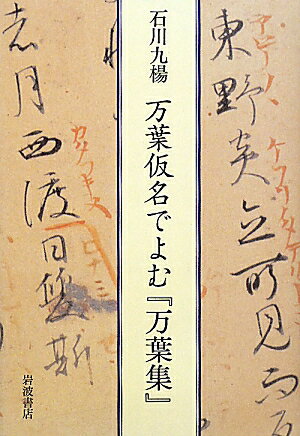 東野炎立所見而
石川九楊 万葉仮名でよむ『万葉集』
月西渡日雙斯
岩波書店